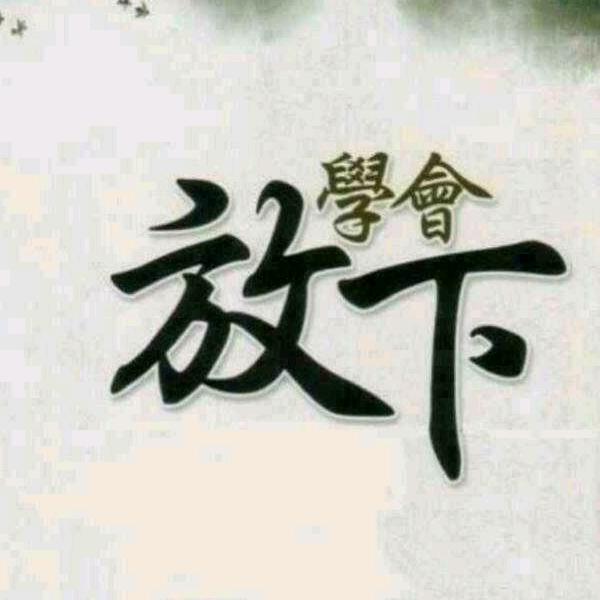 學會
放下